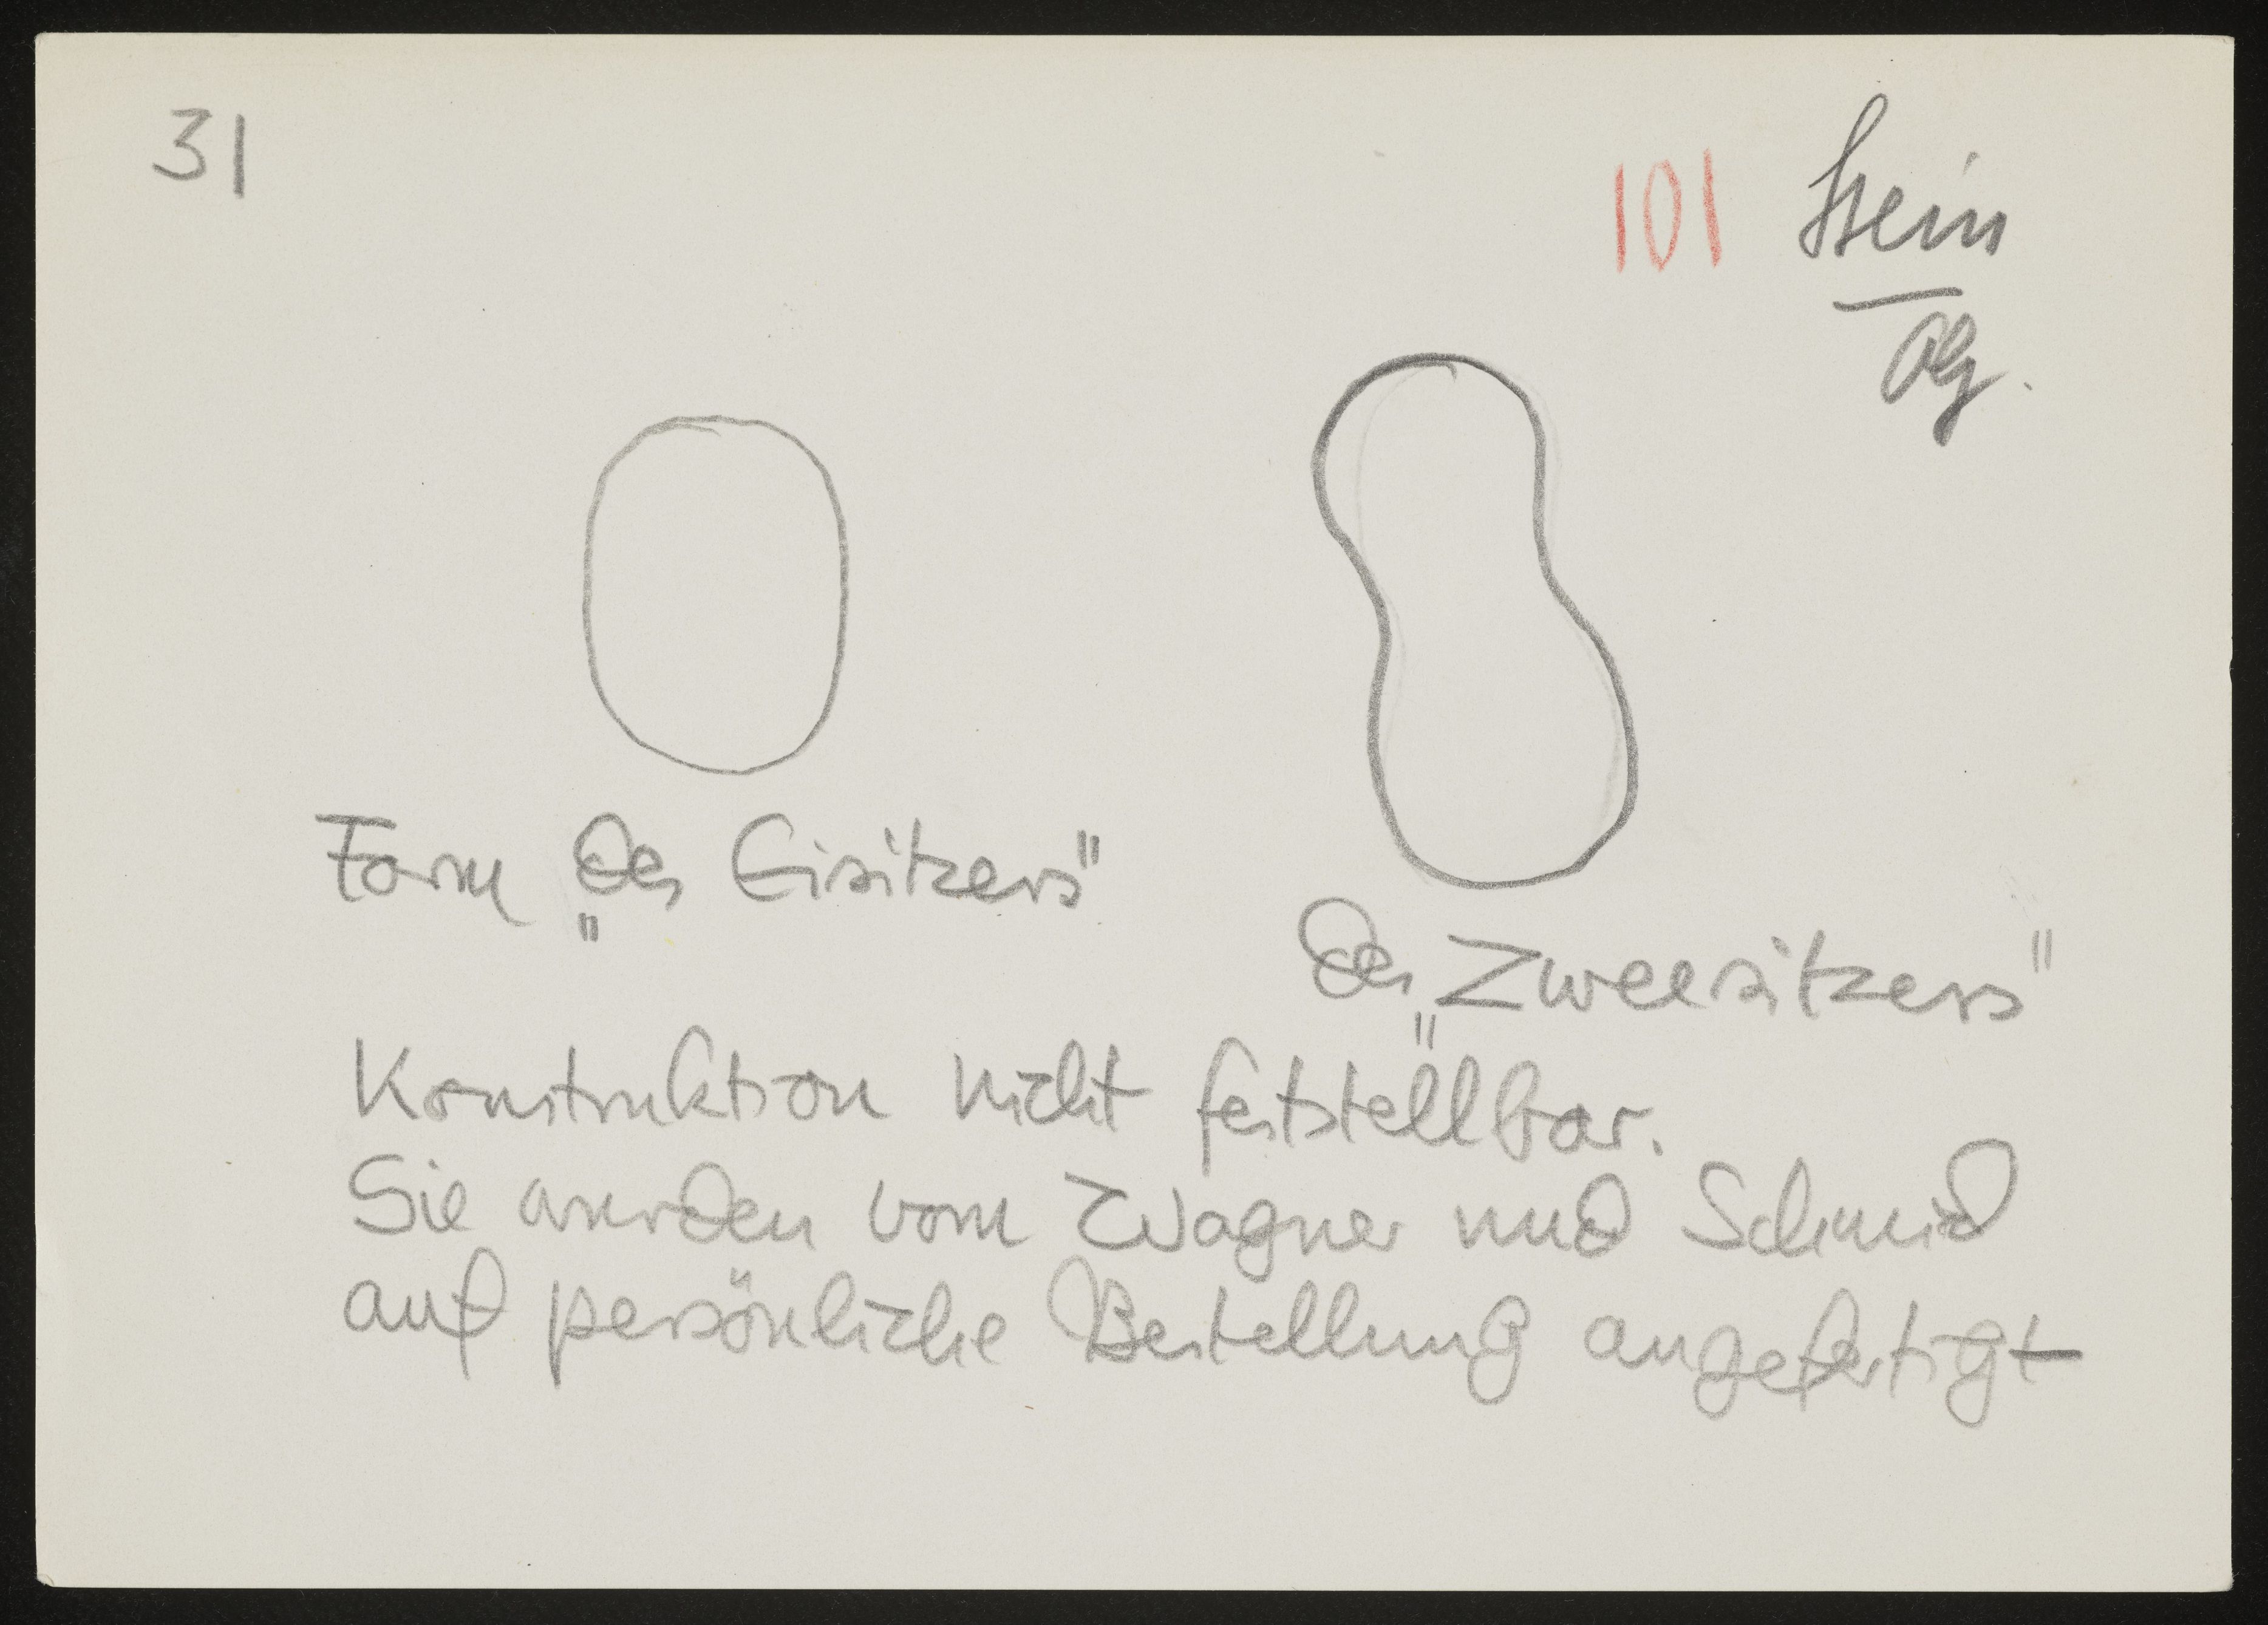 31
101 Stein
Form „des Eisitzers"
des „Zweesitzers"
Konstruktion nicht feststellbar.
Sie wurden vom Wagner und Schmid
auf persönliche Bestellung angefertigt